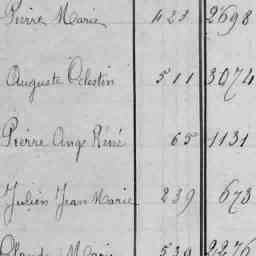 Pierre Marie 423 2698
Auguste Célestin 511 3074
Pierre Ange Réné 65 1131
Julien Jean Marie 239 673
Marie 530 2276